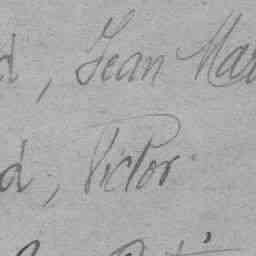 d, Jean Mar
d, Victor